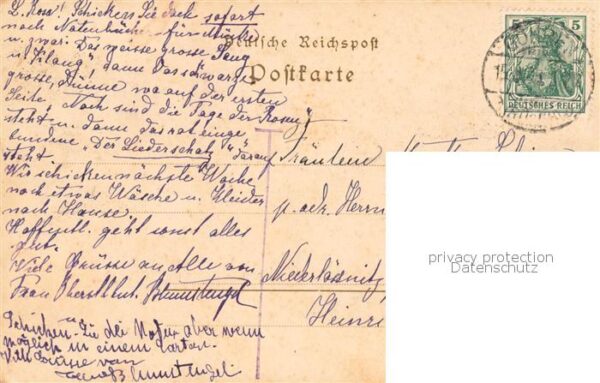 L. Rosa! Schicken Sie doch sofort
nach Natenbücher für Musik
u. zwar: Das weisse grosse „Sang
u. Klang“ dann Das schwarze
grosse, dünne wo auf der ersten
Seite „Noch sind die Tage der Rosen“
steht u. dann das rot einge
bundene „Der Liederschatz“ darauf
steht.
Wir schicken nächste Woche
noch etwas Wäsche u. Kleider
nach Hause.
Hoffentl. geht sonst alles
gut.
Viele Grüsse an Alle von
Frau Oberstlt.
Schicken Sie die Noten aber wenn
möglich in einem Carton.
Viele Grüsse von
Deutsche Reichspost
Postkarte
5
DEUTSCHES REICH
Fräulein
p. adr. Herrn
Niederlössnitz
Heinri
privacy protection
Datenschutz